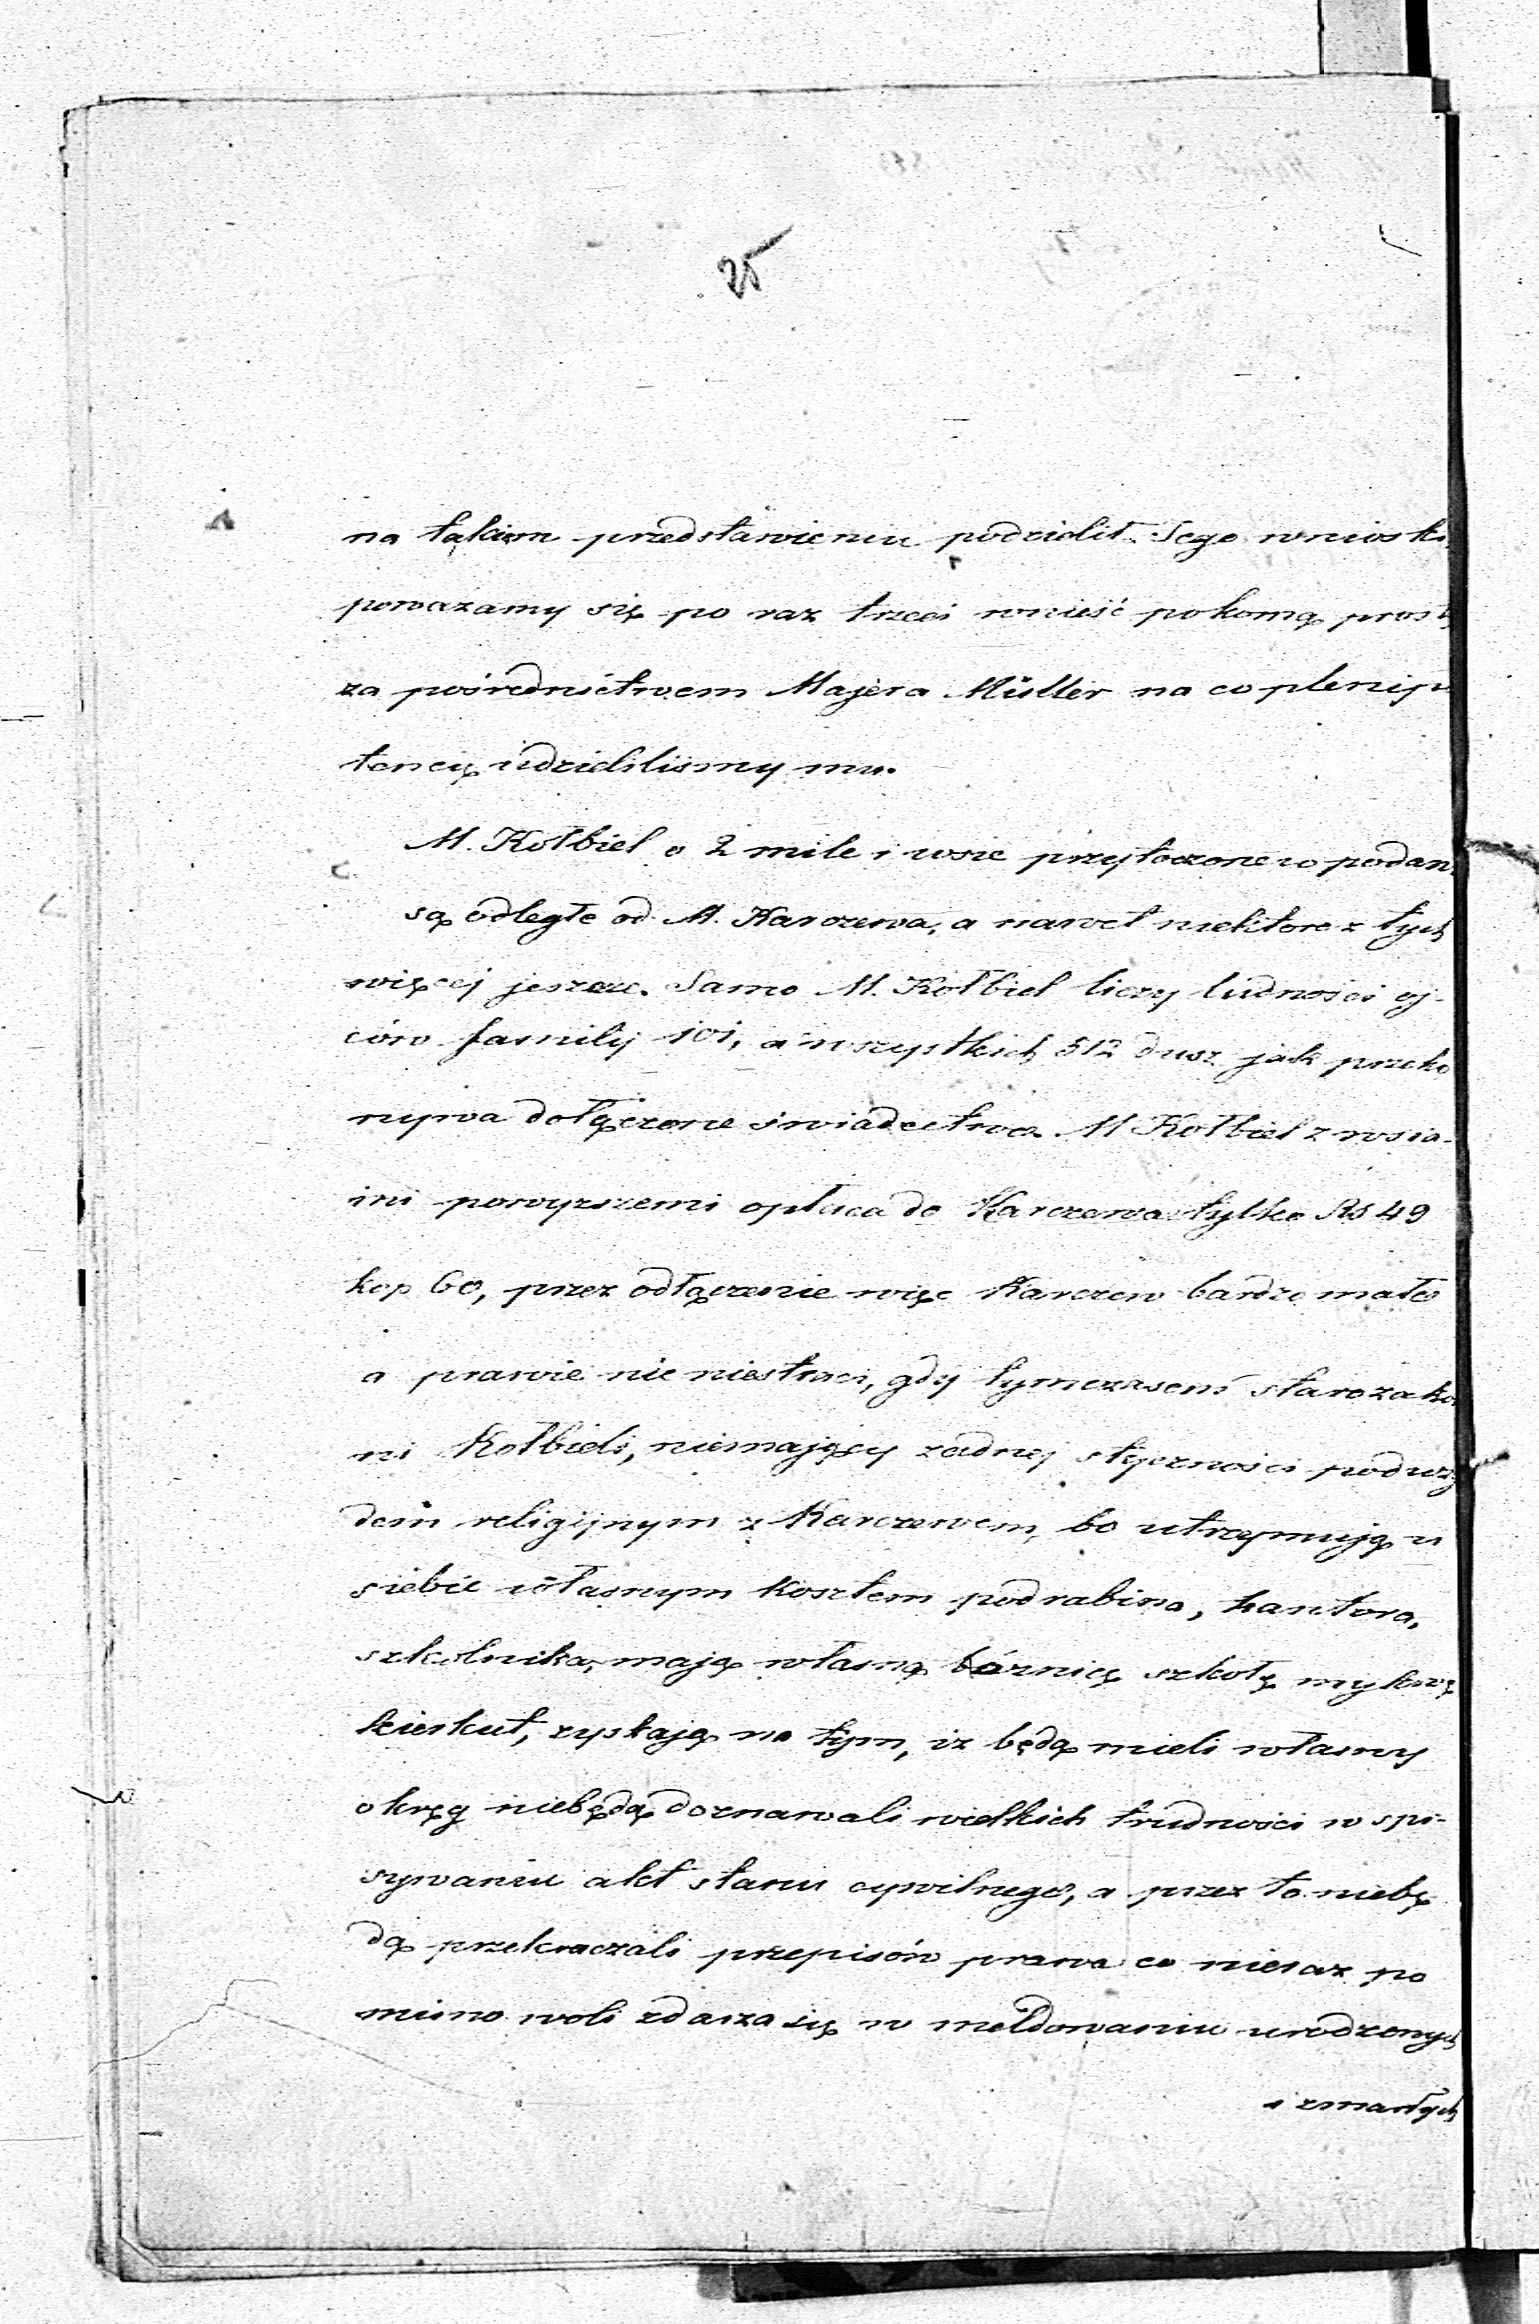 25
na takiem przedstawieniu podzielił. Sego wnioski
poważamy się po raz trzeci wnieść pokorną prośb
za pośrednictwem Majera Müller na co plenipo
tencię udzieliliśmy mu.
M. Kołbiel o 2 mile i wsie przytoczone w podan
są odległe od M. Karczewa, a nawet niektóre z tych
więcej jeszcze. Samo M. Kołbiel liczy ludności oj-
ców familij 101, a wszystkich 512 dusz jak przeko
nywa dołączone świadectwo. M Kołbiel z wsia-
mi powyższemi opłaca do Karczewa tylko Rs 49
kop 60, przez odłączenie więc Karczew bardzo mało
a prawie nic niestraci, gdy tymczasem starozako
ni Kołbieli, niemający żadnej styczności pod wzg
dem religijnym z Karczewem, bo utrzymują u
siebie własnym kosztem podrabina, kantora,
szkolnika, mają własną bóżnicę szkołę mykwę
kierkut, zyskają na tym, iż będą mieli własny
okręg niebędą doznawali wielkich trudności w spi-
sywaniu akt stanu cywilnego, a przez to niebę
dą przekraczali przepisów prawa co nieraz po
mimo woli zdarza się w meldowaniu urodzonych
i zmarłych